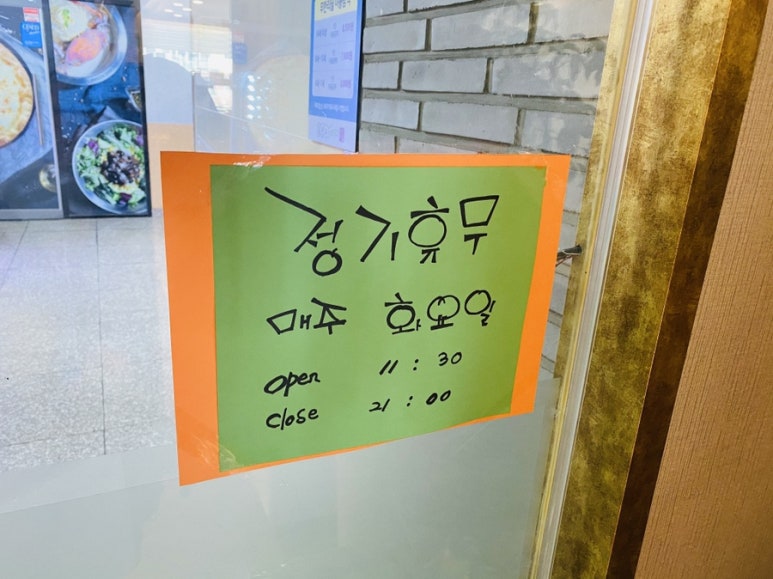 정기휴무
매주 화요일
open 11 : 30
close 21 : 00